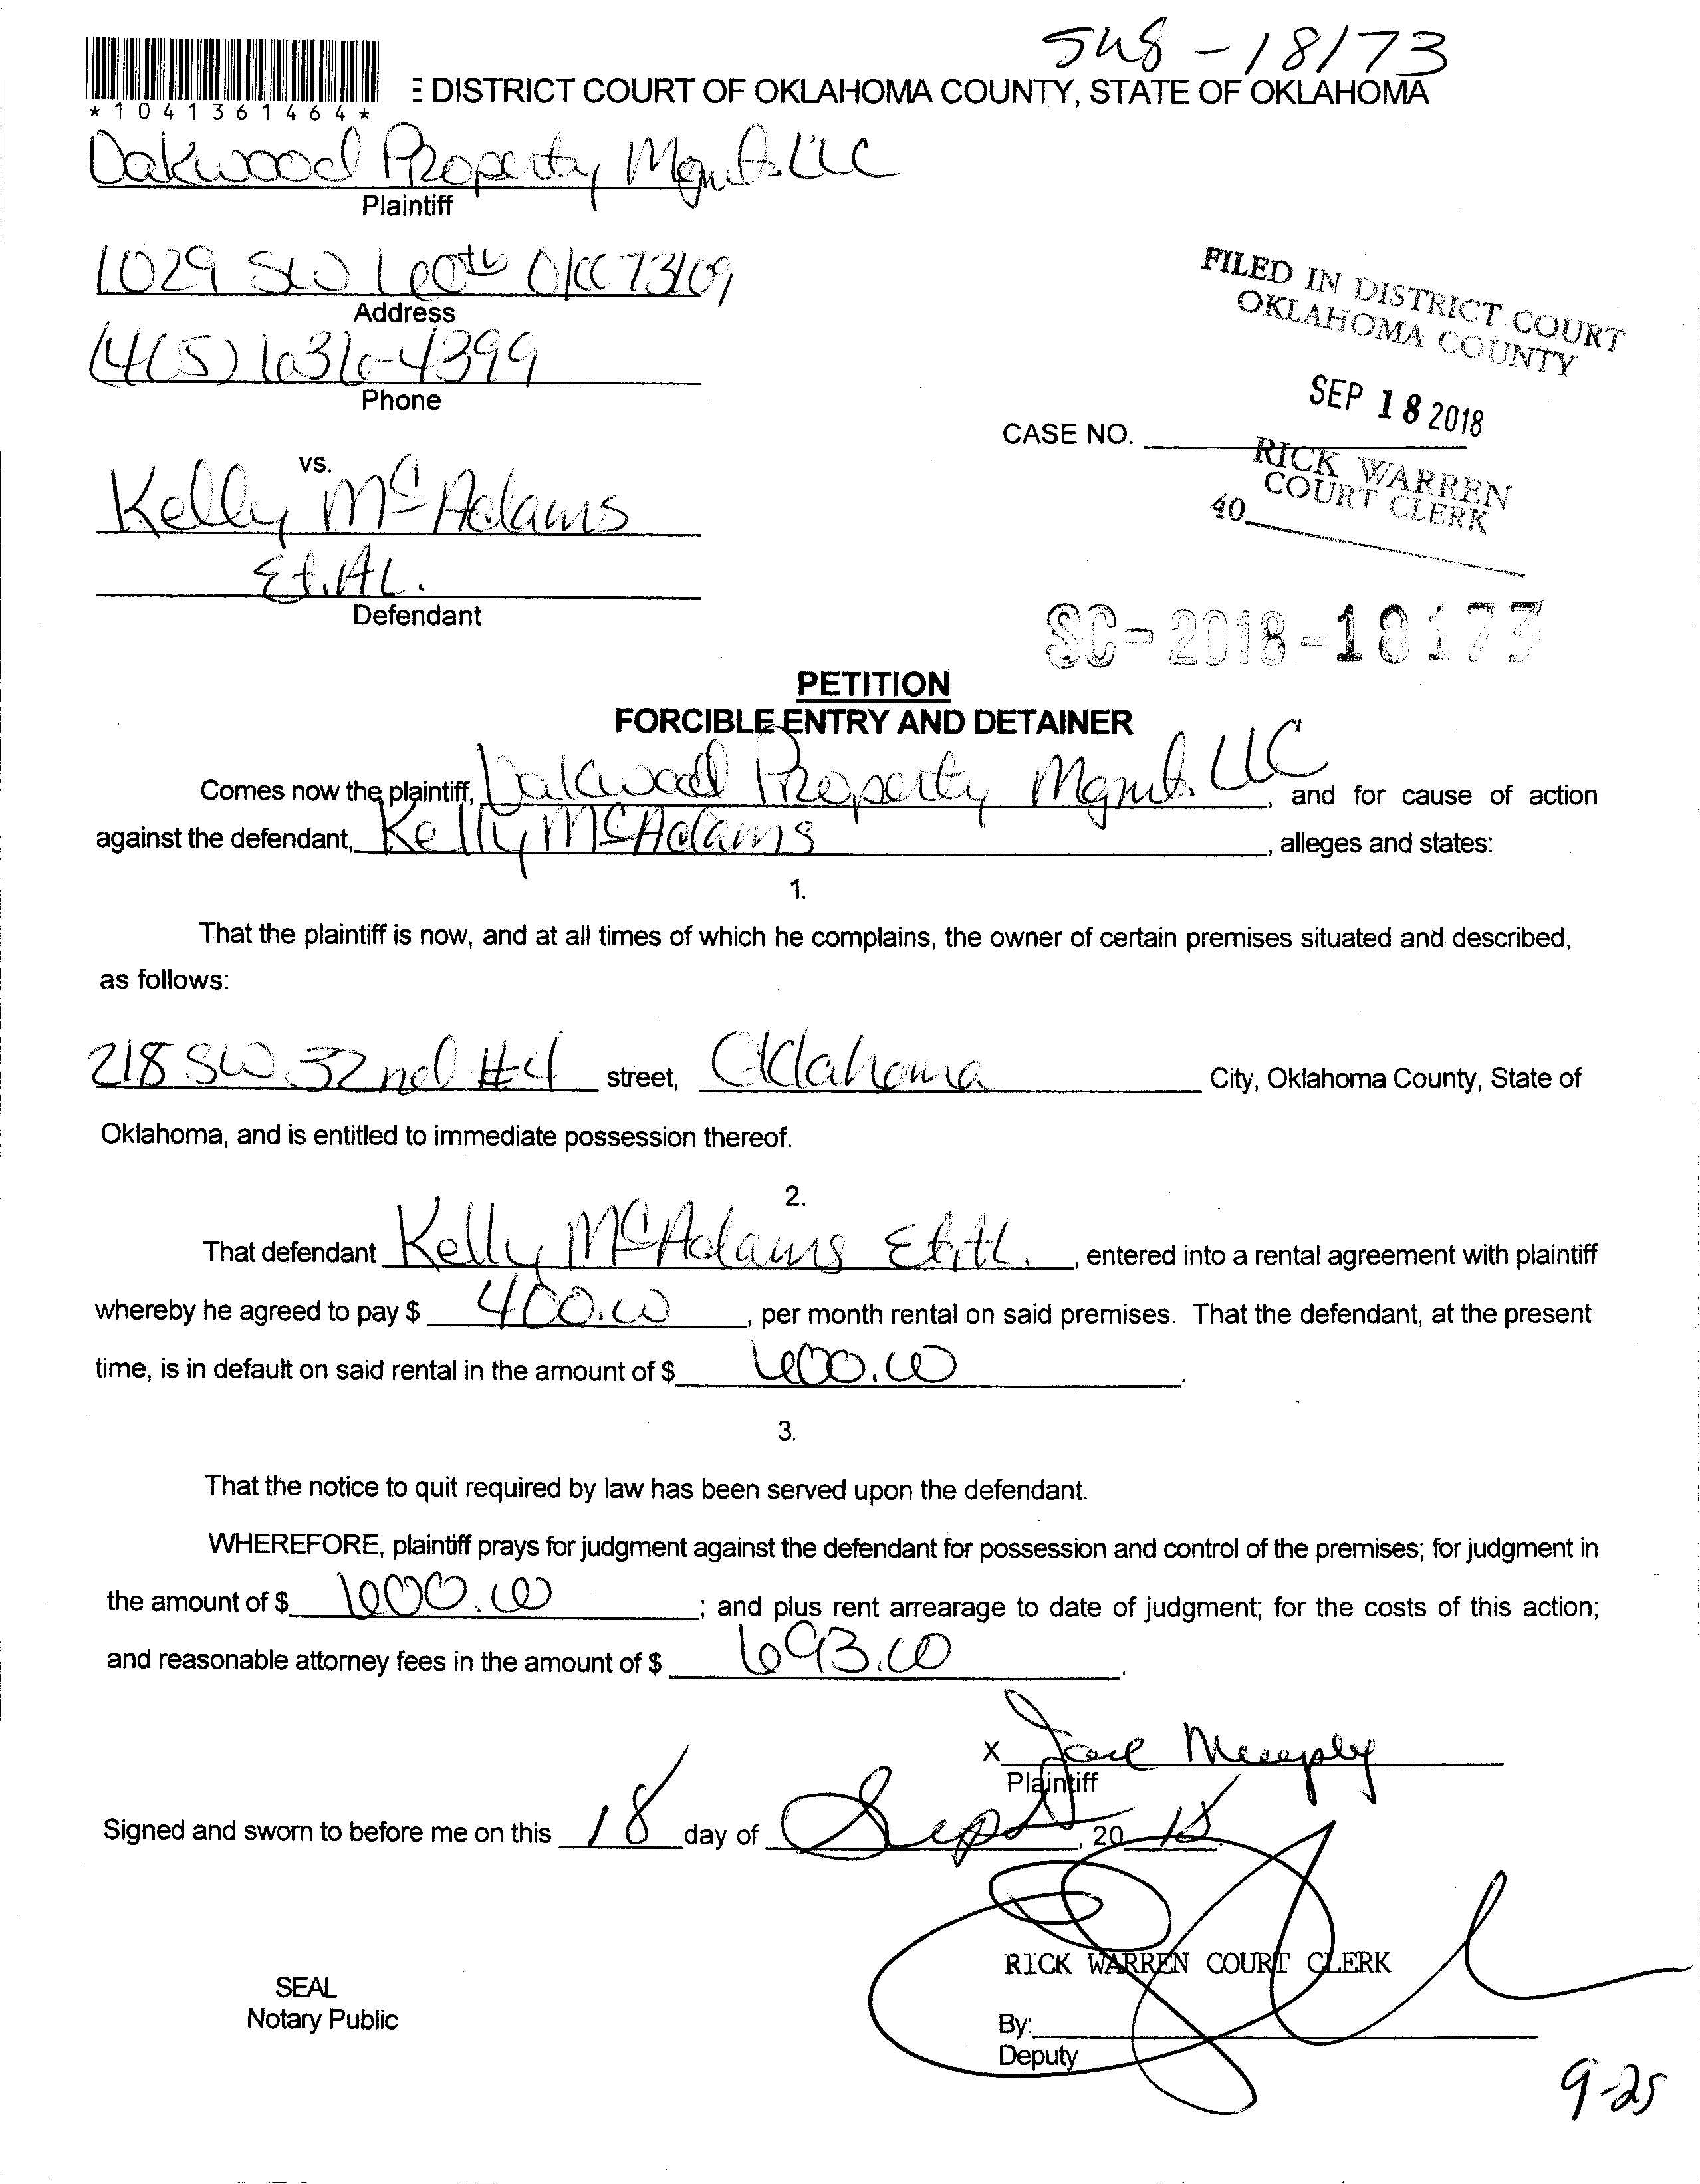 SM8-18173
E DISTRICT COURT OF OKLAHOMA COUNTY, STATE OF OKLAHOMA
*1041361464*
Oakwood Property Mgmt. LLC
Plaintiff
1029 SW 60th OKC 73109
Address
(405) 636-4399
Phone
FILED IN DISTRICT COURT
OKLAHOMA COUNTY
SEP 18 2018
CASE NO.
RICK WARREN
COURT CLERK
40
vs.
Kelly McAdams
Et. AL.
Defendant
SC-2018-18173
PETITION
FORCIBLE ENTRY AND DETAINER
Comes now the plaintiff, Oakwood Property Mgmt. LLC, and for cause of action
against the defendant, Kelly McAdams, alleges and states:
1.
That the plaintiff is now, and at all times of which he complains, the owner of certain premises situated and described,
as follows:
218 SW 32nd #4 street, Oklahoma City, Oklahoma County, State of
Oklahoma, and is entitled to immediate possession thereof.
2.
That defendant Kelly McAdams Et. AL., entered into a rental agreement with plaintiff
whereby he agreed to pay $ 400.00, per month rental on said premises. That the defendant, at the present
time, is in default on said rental in the amount of $ 600.00.
3.
That the notice to quit required by law has been served upon the defendant.
WHEREFORE, plaintiff prays for judgment against the defendant for possession and control of the premises; for judgment in
the amount of $ 600.00; and plus rent arrearage to date of judgment; for the costs of this action;
and reasonable attorney fees in the amount of $ 693.00.
X
Plaintiff
Signed and sworn to before me on this 18 day of Sept, 20 18.
RICK WARREN COURT CLERK
SEAL
Notary Public
By:
Deputy
9-25